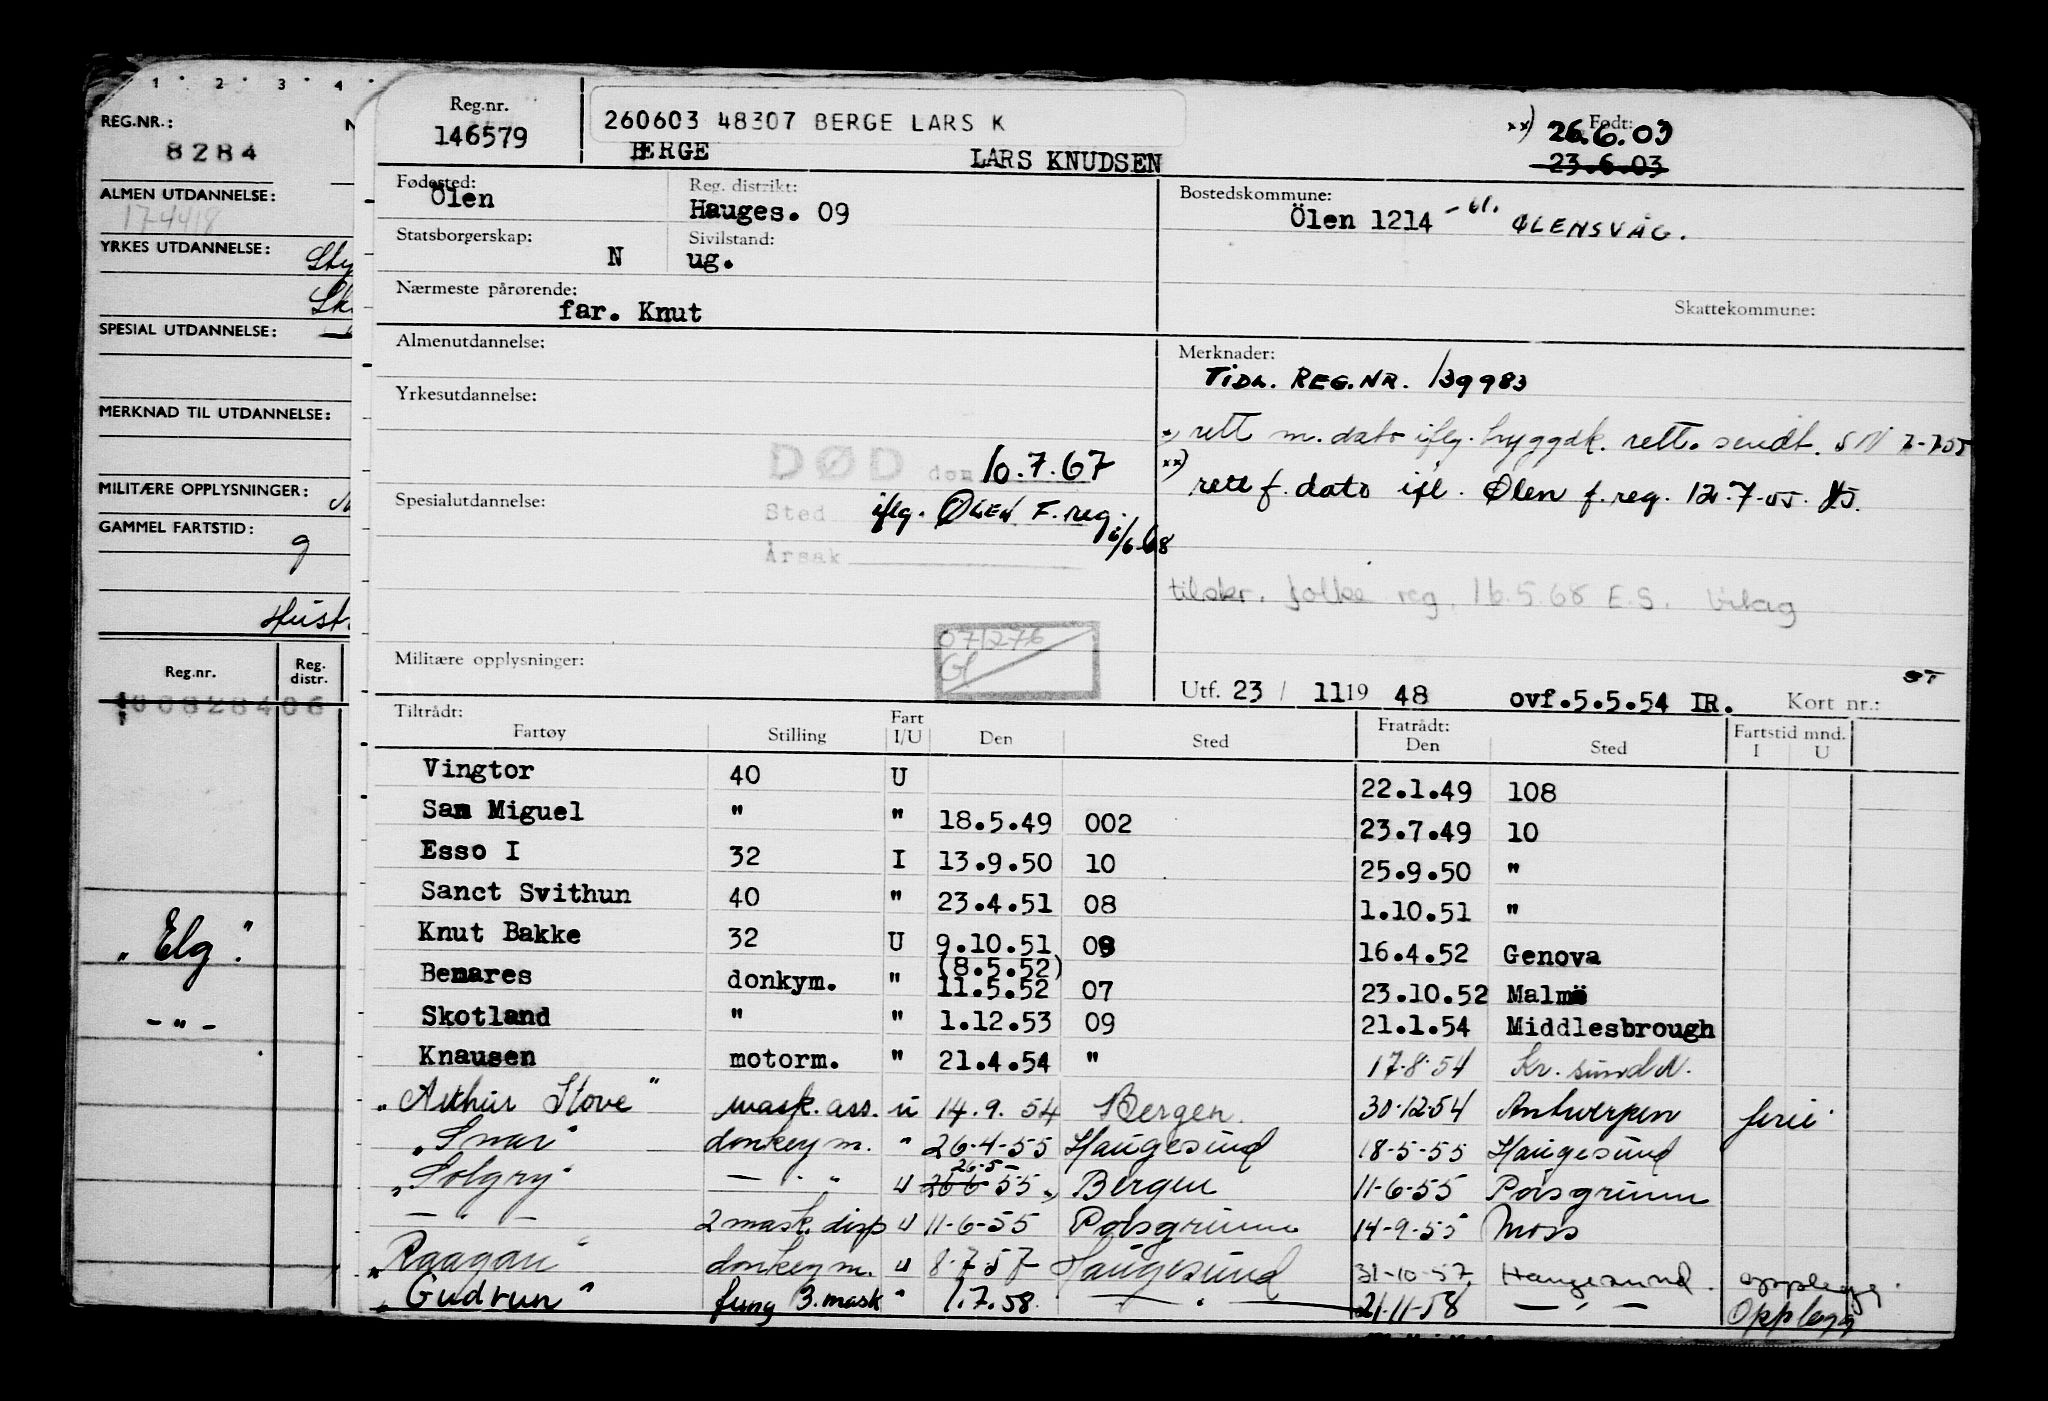 1 2 3 4
REG.NR.: N
8284
ALMEN UTDANNELSE:
YRKES UTDANNELSE:
SPESIAL UTDANNELSE:
MERKNAD TIL UTDANNELSE:
MILITÆRE OPPLYSNINGER:
GAMMEL FARTSTID:
9
Reg.nr. Reg. distr.
"Elg".
- " -
Reg.nr.
146579
260603 48307 BERGE LARS K
BERGE LARS KNUDSEN
Født:
xx) 26.6.03
23.6.03
Fødested: Ölen
Reg. distrikt: Hauges. 09
Bostedskommune:
Ölen 1214 ØLENSVÅG.
Statsborgerskap: N
Sivilstand: ug.
Nærmeste pårørende:
far. Knut
Skattekommune:
Almenutdannelse:
Merknader:
TIDL. REG.NR. 139983
Yrkesutdannelse:
rett m. dato iflg. hyggdk. rett. sendt. SN 7-7-55
DØD den 10.7.67
xx) rett f. dato ifl. Ølen f.reg. 12.7.55.
Spesialutdannelse:
Sted iflg. ØLEN F.reg. 6/6-68
Årsak
tilskr. folke reg. 16.5.68 E.S.
071276
Gl
Militære opplysninger:
Utf. 23 / 11 19 48 ovf.5.5.54 IR. Kort nr.:
ST
Tiltrådt: Fartøy Stilling Fart I/U Den Sted Fratrådt: Den Sted Fartstid mnd. I U
Vingtor 40 U 22.1.49 108
San Miguel " " 18.5.49 002 23.7.49 10
Esso I 32 I 13.9.50 10 25.9.50 "
Sanct Svithun 40 " 23.4.51 08 1.10.51 "
Knut Bakke 32 U 9.10.51 09 16.4.52 Genova
(8.5.52)
Benares donkym. " 11.5.52 07 23.10.52 Malmö
Skotland " " 1.12.53 09 21.1.54 Middlesbrough
Knausen motorm. " 21.4.54 " 17.8.54 Kr. sund N.
"Arthur Stove" mask. ass. u 14.9.54 Bergen. 30.12.54 Antwerpen ferie
"Snar" donkeym. " 26-4-55 Haugesund 18-5-55 Haugesund
26-5-
"Solgry" — " — u 26 6 55 Bergen 11-6-55 Porsgrunn
— " — 2 mask. disp u 11-6-55 Porsgrunn 14-9-55 Moss
"Raagan" donkeym. u 8.7.57 Haugesund 31-10-57 Haugesund. opplegg.
"Gudrun" fung 3.mask " 1.7.58. — " — 21-11-58 — " — Opplegg